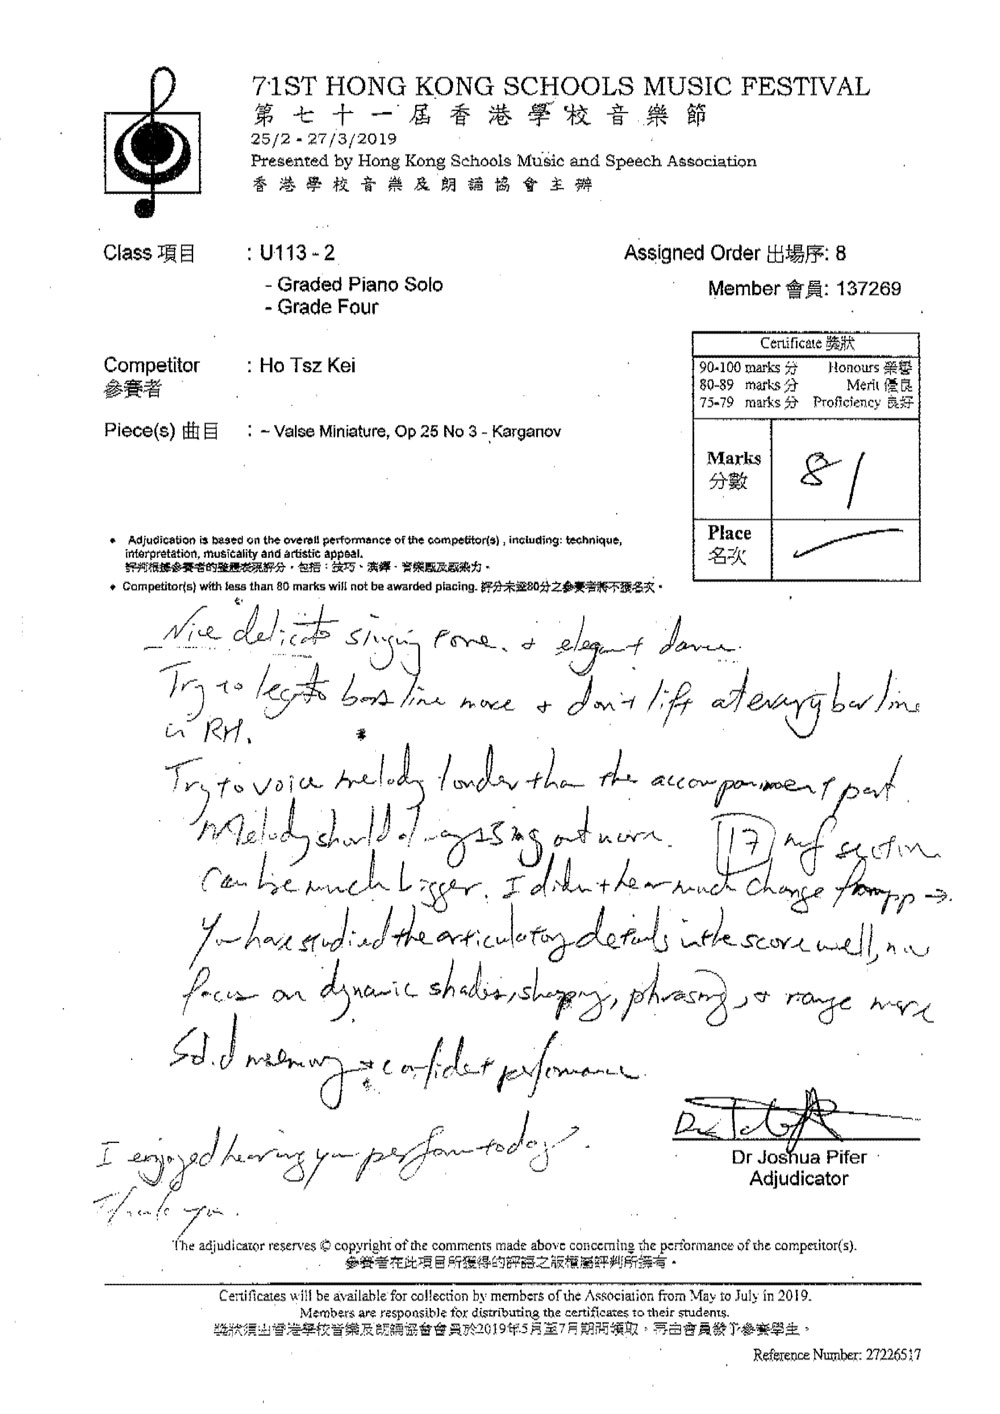 71ST HONG KONG SCHOOLS MUSIC FESTIVAL
第七十一屆香港學校音樂節
25/2 - 27/3/2019
Presented by Hong Kong Schools Music and Speech Association
香港學校音樂及朗誦協會主辦
Class 項目 : U113 - 2
Assigned Order 出場序: 8
- Graded Piano Solo
Member 會員: 137269
- Grade Four
Certificate 獎狀
90-100 marks 分 Honours 榮譽
80-89 marks 分 Merit 優良
75-79 marks 分 Proficiency 良好
Competitor : Ho Tsz Kei
參賽者
Piece(s) 曲目 : ~ Valse Miniature, Op 25 No 3 - Karganov
Marks 81
分數
Place
名次
• Adjudication is based on the overall performance of the competitor(s) , including: technique,
interpretation, musicality and artistic appeal.
評判根據參賽者的整體表現評分，包括：技巧、演繹、音樂感及感染力。
• Competitor(s) with less than 80 marks will not be awarded placing. 評分未達80分之參賽者將不獲名次。
Nice delicate singing tone. + elegant dance.
Try to legato bass line more + don't lift at every bar line
in RH.
Try to voice melody louder than the accompaniment part.
Melody should always sing out more. 17 mf section
can be much bigger. I didn't hear much change from pp →.
You have studied the articulation details in the score well, now
focus on dynamic shades, shaping, phrasing, + range more
Solid memory + confident performance.
I enjoyed hearing you perform today.
Thank you.
Dr Joshua Pifer
Adjudicator
The adjudicator reserves © copyright of the comments made above concerning the performance of the competitor(s).
參賽者在此項目所獲得的評語之版權屬評判所擁有。
Certificates will be available for collection by members of the Association from May to July in 2019.
Members are responsible for distributing the certificates to their students.
獎狀須由香港學校音樂及朗誦協會會員於2019年5月至7月期間領取，再由會員發予參賽學生。
Reference Number: 27226517